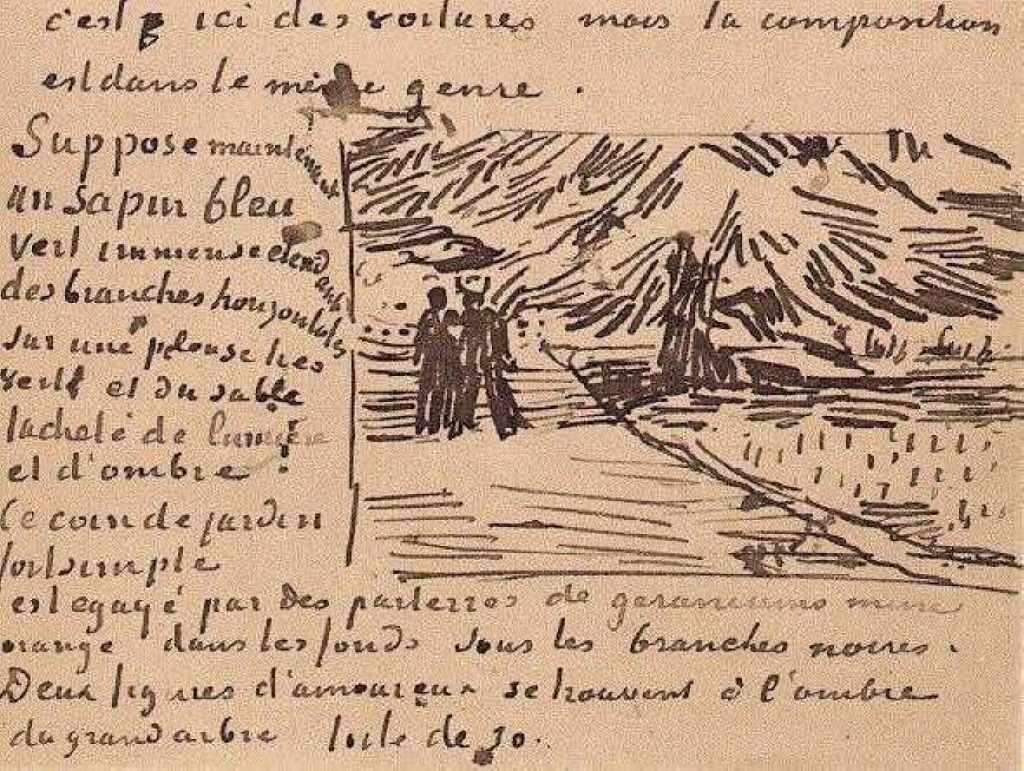 c'est ici des voitures mais la composition
est dans le même genre.
Suppose maintenant
un sapin bleu
vert immense etendant
des branches horizontales
sur une pelouse tres
verte et du sable
tacheté de lumière
et d'ombre.
Ce coin de jardin
fort simple
est egayé par des parterres de geraniums mine
orange dans les fonds sous les branches noires.
Deux figures d'amoureux se trouvent à l'ombre
du grand arbre toile de 30.